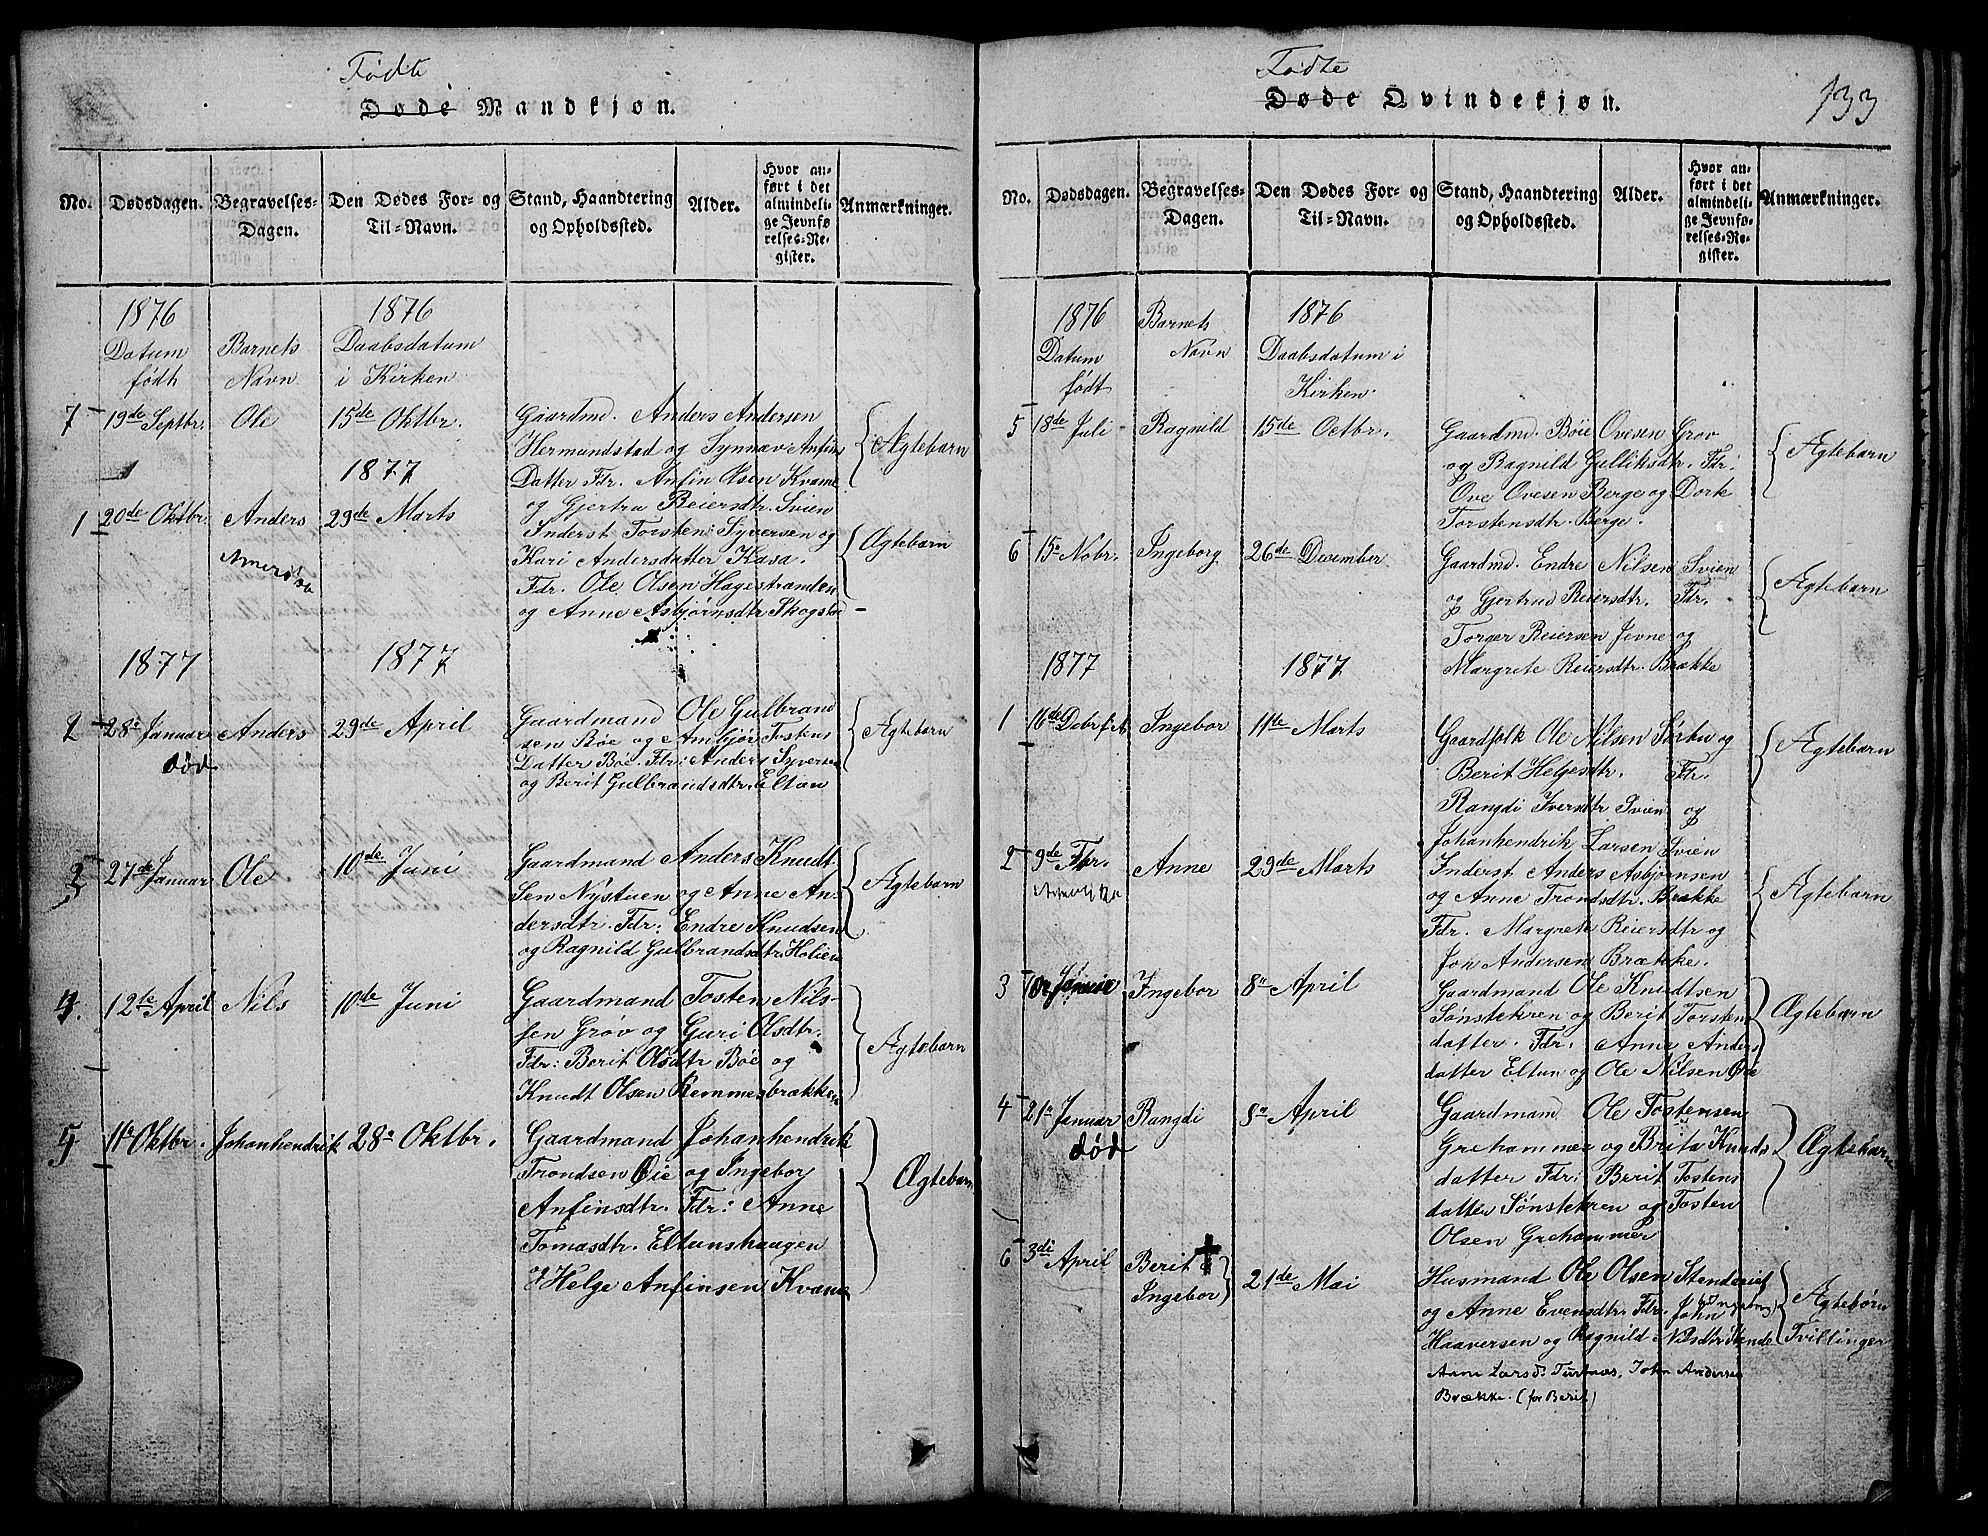 Fødte
Døde Mandkjøn.
No. Dødsdagen. Begravelses-Dagen. Den Dødes For- og Til-Navn. Stand, Haandtering og Opholdssted. Alder. Hvor anført i det almindelige Jevnførelses-Register. Anmærkninger.
1876 1876
Datum født Barnets Navn Daabsdatum i Kirken
7 19de Septbr. Ole 15de Oktbr. Gaardmd. Anders Andersen
Hermundstad og Synnøv Anfins
Datter Fdr. Anfin Olsen Kvame
og Gjertru Beiersdtr. Svien
Ægtebarn
1877
1 20de Oktbr. Anders 29de Marts Inderst Torsten Syversen og
Kari Andersdatter Kasa.
Fdr. Ole Olsen Hagestranden
og Anne Asbjørnsdtr. Skogsta
Ægtebarn
Amerika
1877 1877
2 28. Januar Anders 29de April Gaardmand Ole Gulbrand
sen Bøe og Ambjør Tostens
Datter Bøe. Fdr: Anders Syversen
og Berit Gulbrandsdtr. Eltan
Ægtebarn
død
3 27de Januar Ole 10de Juni Gaardmand Anders Knudt
sen Nystuen og Anne An-
dersdtr. Fdr: Endre Knudsen
og Ragnild Gulbrandsdtr. Holien
Ægtebarn
4. 12te April Nils 10de Juni Gaardmand Tosten Nils-
sen Grøv og Guri Olsdtr.
Fdr: Berit Olsdtr Bøe og
Knudt Olsen Remmesbrækken
Ægtebarn
5 11te Oktbr. Johanhendrik 28de Oktbr. Gaardmand Johanhendrik
Trondsen Øie og Ingebor
Anfinsdtr. Fdr: Anne
Tomasdtr. Eltunshaugen
& Helge Anfinsen Kvame
Ægtebarn
Fødte
Døde Qvindekjøn.
133
No. Dødsdagen. Begravelses-Dagen. Den Dødes For- og Til-Navn. Stand, Haandtering og Opholdssted. Alder. Hvor anført i det almindelige Jevnførelses-Register. Anmærkninger.
1876 1876
Datum født Barnets Navn Daabsdatum i Kirken.
5 18de Juli Ragnild 15de Octbr. Gaardmd. Bøie Ovesen Grov
og Ragnild Gulliksdtr. Fdr:
Ove Ovesen Berge og Dorte
Torstensdtr. Berge.
Ægtebarn
6 15. Nobr. Ingeborg 26de December Gaardmd. Endre Nilsen Svien
og Gjertrud Reiersdtr. Fdr.
Torger Reiersen Jevne og
Margrete Reiersdtr. Brække
Ægtebarn
1877 1877
1 16de Ingebor 11te Marts Gaardfolk Ole Nilsen Sørbu og
Berit Helgesdtr. Fdr.
Rangdi Iversdtr Svien og
Johanhendrik Larsen Svien
Ægtebarn
2 9de Fbr. Anne 29de Marts Inderst Anders Asbjørnsen
og Anne Trondsdtr. Brække
Fdr. Margrete Reiersdtr og
Jon Andersen Brække.
Ægtebarn
Amerika
3 Ingebor 8de April Gaardmand Ole Knudtsen
Sønstekren og Berit Torstens
datter. Fdr. Anne Anders
datter Eltun og Ole Nilsen Øie
Ægtebarn
4 21de Januar Rangdi 8de April Gaardmand Ole Tostensen
Grehammer og Brita Knuds
datter Fdr: Berit Tostens
datter Sønstekren og Tosten
Olsen Grehammer
Ægtebarn
død
6 3die April Berit ✝ Ingebor 21de Mai Husmand Ole Olsen
og Anne Evensdtr. Fdr. John (til Ingeborg)
Haaversen og Ragnild Nilsdtr. Stende
Anne Larsd. John Andersen
Brække. (for Berit)
Ægtebørn
Tvillinger